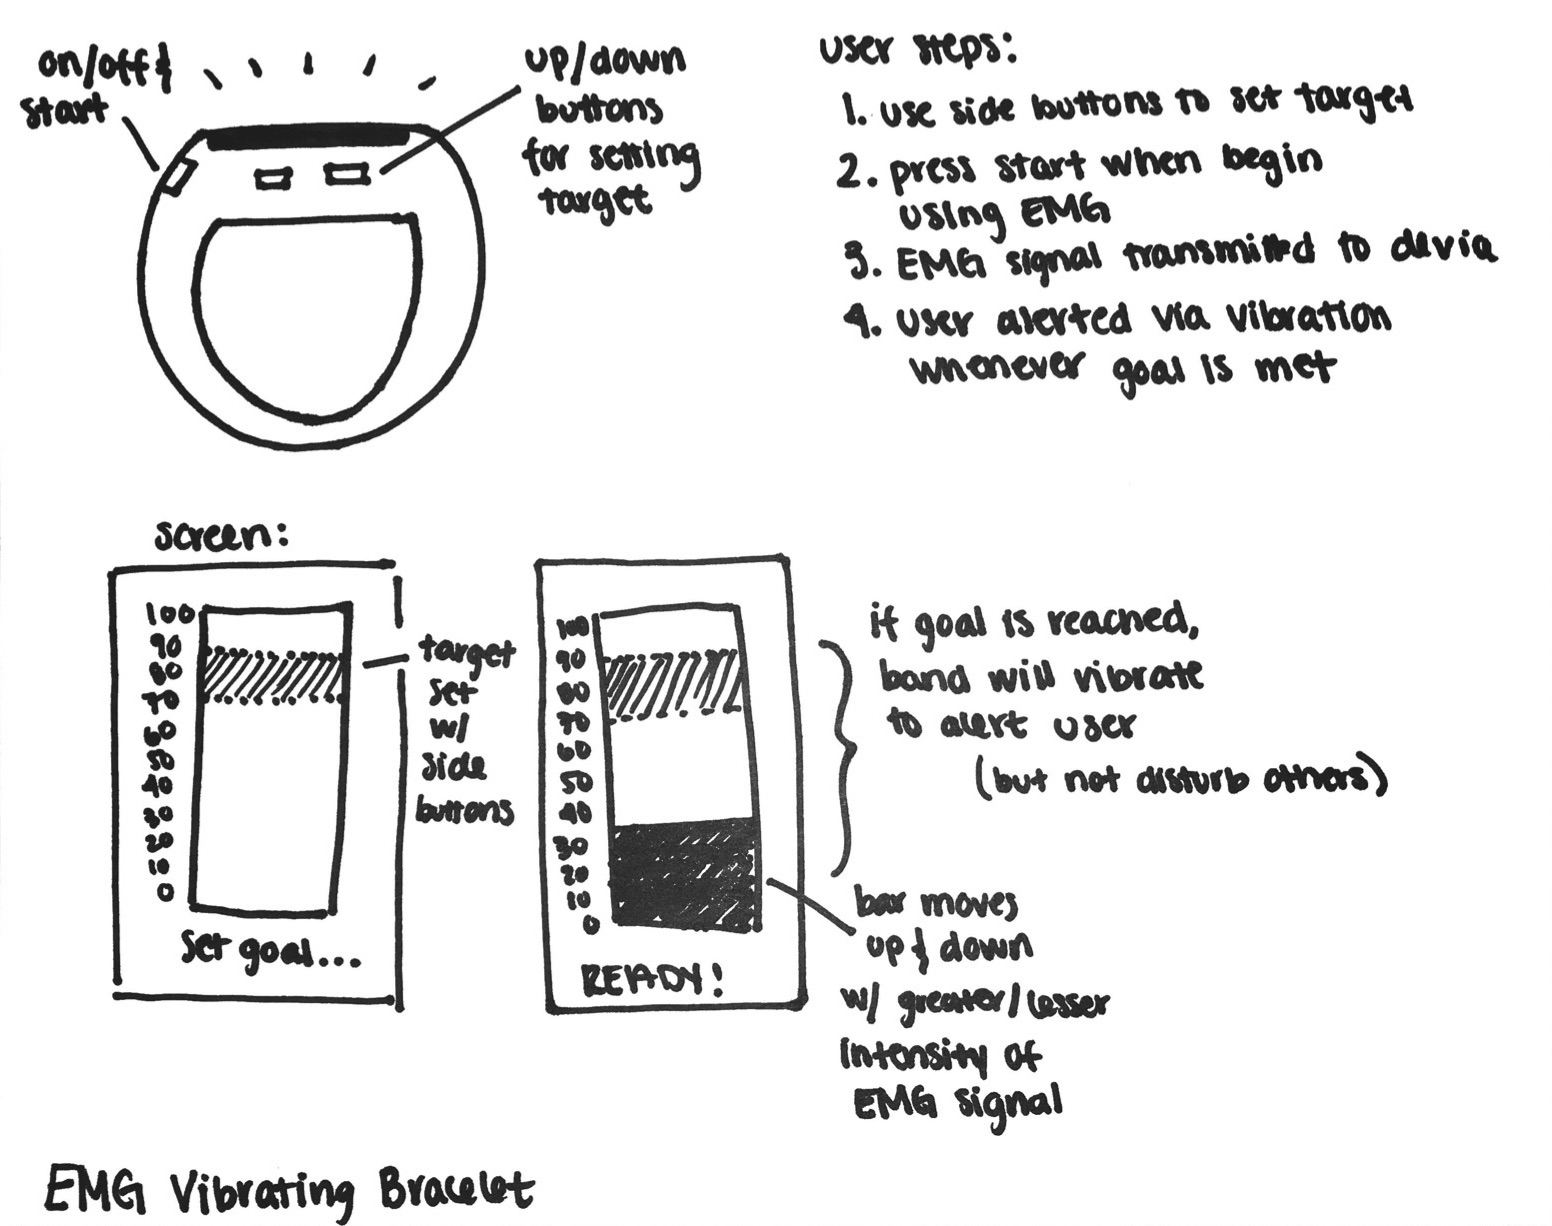 on/off &
start
up/down
buttons
for setting
target
user steps:
1. use side buttons to set target
2. press start when begin
using EMG
3. EMG signal transmitted to device
4. user alerted via vibration
whenever goal is met
screen:
100
90
80
70
60
50
40
30
20
10
0
set goal...
target
set
w/
side
buttons
100
90
80
70
60
50
40
30
20
10
0
READY!
if goal is reached,
band will vibrate
to alert user
(but not disturb others)
bar moves
up & down
w/ greater/lesser
intensity of
EMG signal
EMG Vibrating Bracelet